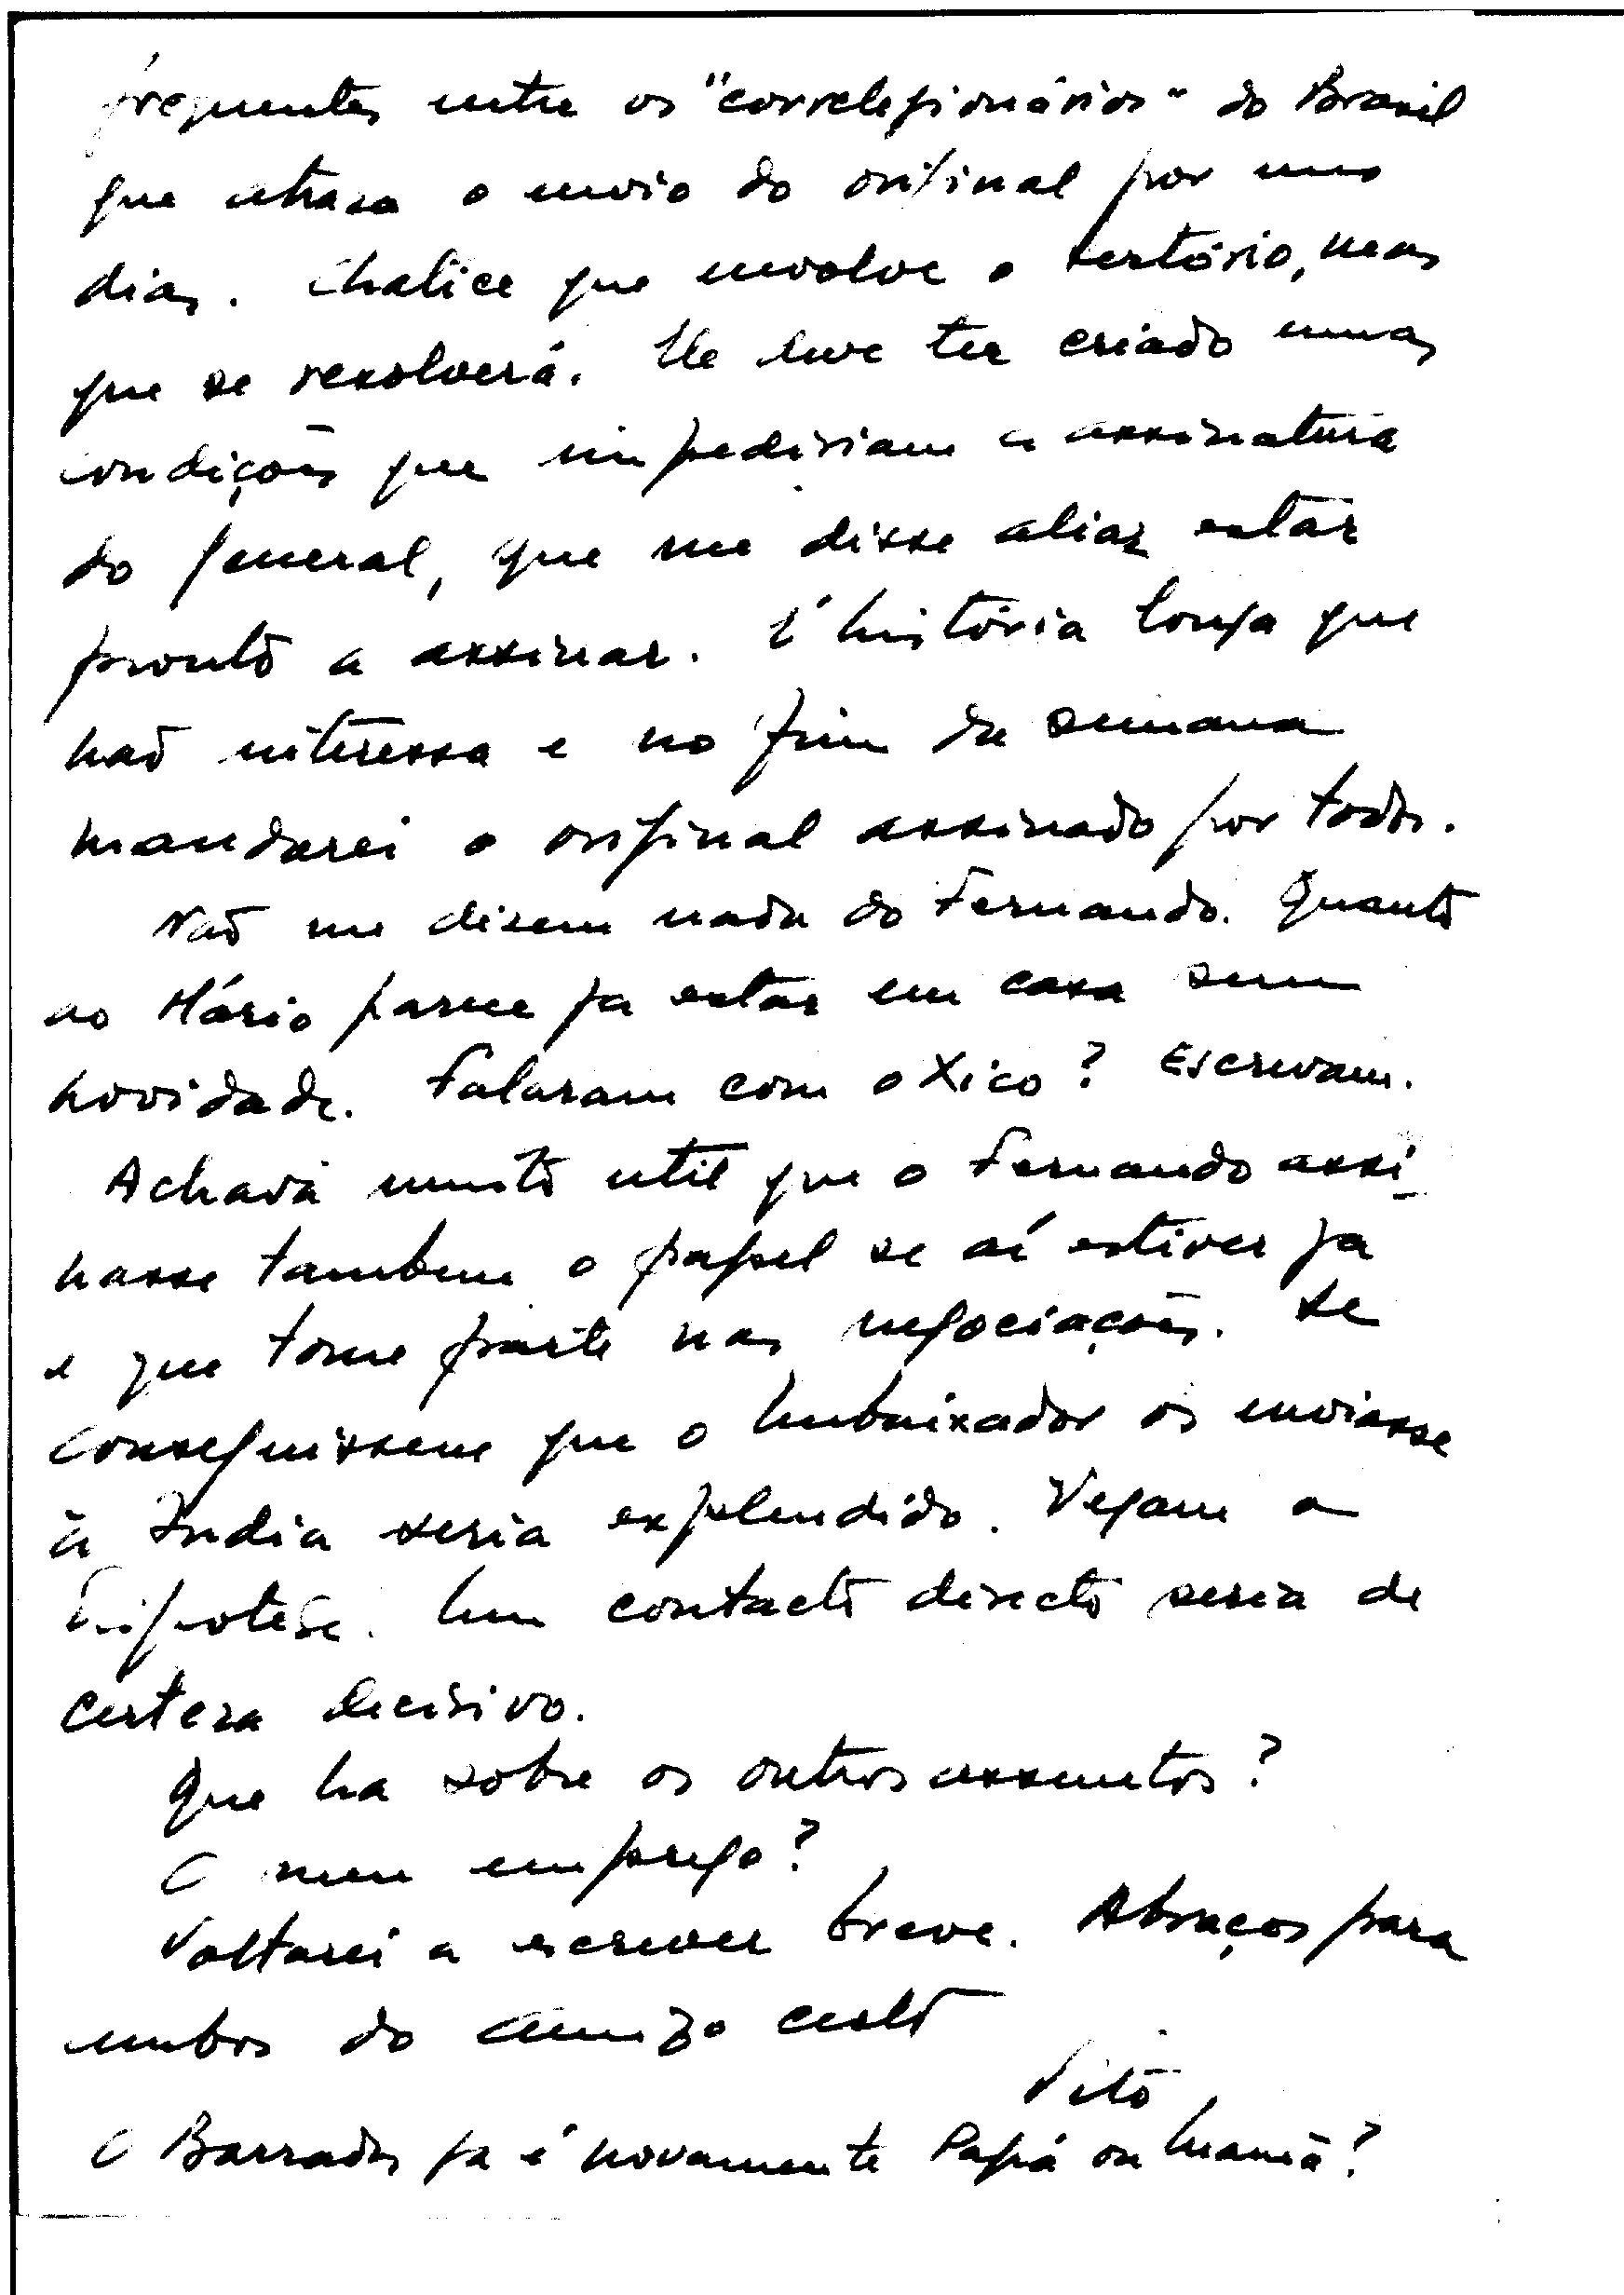 frequentes entre os "correlegionários" do Brasil
que atrasa o envio do original por uns
dias. Chatice que envolve o Sertório, mas
que se resolverá. Ele deve ter criado umas
condições que impediriam a assinatura
do general, que me disse aliaz estar
pronto a assinar. É história longa que
não interessa e no fim da semana
mandarei o original assinado por todos.
Não me dizem nada do Fernando. Quanto
ao Mário parece ja estar em casa sem
novidade. Falaram com o Xico? Escrevam.
Achava muito util que o Fernando assi-
nasse tambem o papel se aí estiver ja
e que tome parte nas negociações. Se
conseguissem que o Embaixador os enviasse
à India seria explendido. Vejam a
hipotese. Um contacto directo seria de
certeza decisivo.
Que ha sobre os outros assuntos?
O meu emprego?
Voltarei a escrever breve. Abraços para
ambos do amigo certo
Vito
O Barradas ja é novamente Papá ou Mamã?